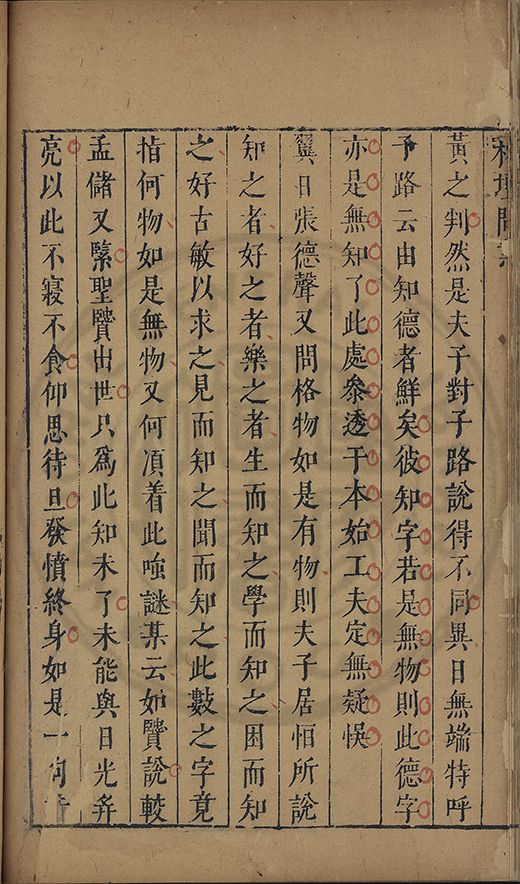 黃之判然是夫子對子路說得不同異日無端特呼
子路云由知德者鮮矣彼知字若是無物則此德字
亦是無知了此處叅透于本始工夫定無疑悞
翼日張德聲又問格物如是有物則夫子居恒所說
知之者好之者樂之者生而知之學而知之困而知
之好古敏以求之見而知之聞而知之此數之字竟
指何物如是無物又何湏着此啞謎某云如贒說較
孟儲又緊聖贒出世只為此知未了未能與日光并
亮以此不寢不食仰思待旦發憤終身如是一